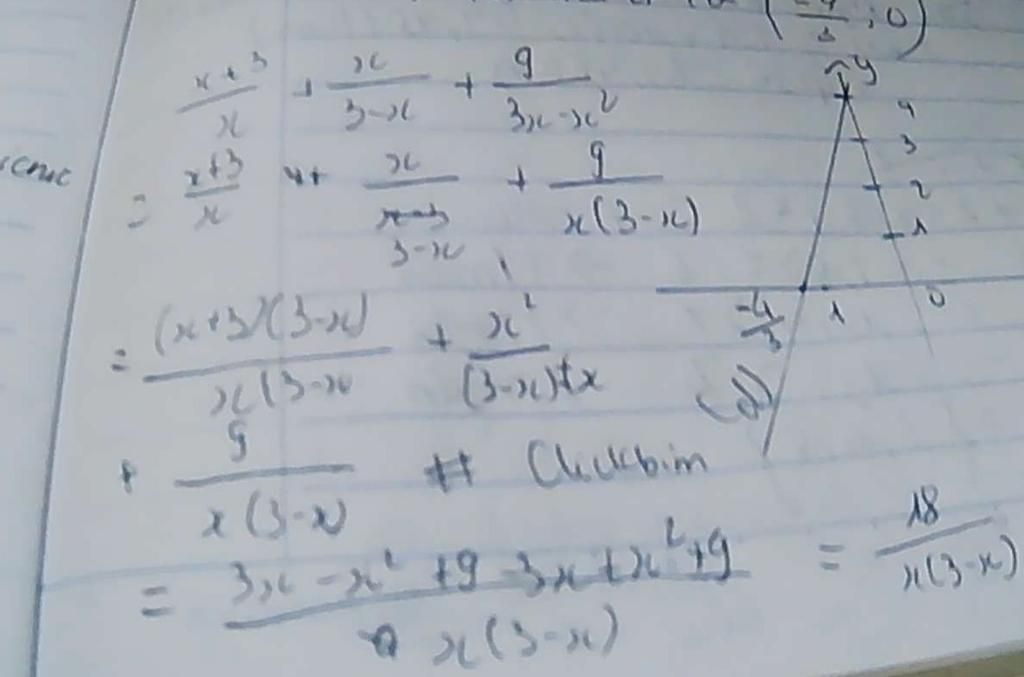 ( -4/3 ; 0)
(x+3)/x + x/(3-x) + 9/(3x-x²)
= (x+3)/x + x/(3-x) + 9/(x(3-x))
= (x+3)(3-x)/(x(3-x) + x²/((3-x)x
+ 9/(x(3-x) # Clickbim
= (3x-x²+9-3x+x²+9)/(x(3-x)) = 18/(x(3-x)
y
4
3
2
1
-4/3 1 0
(d)